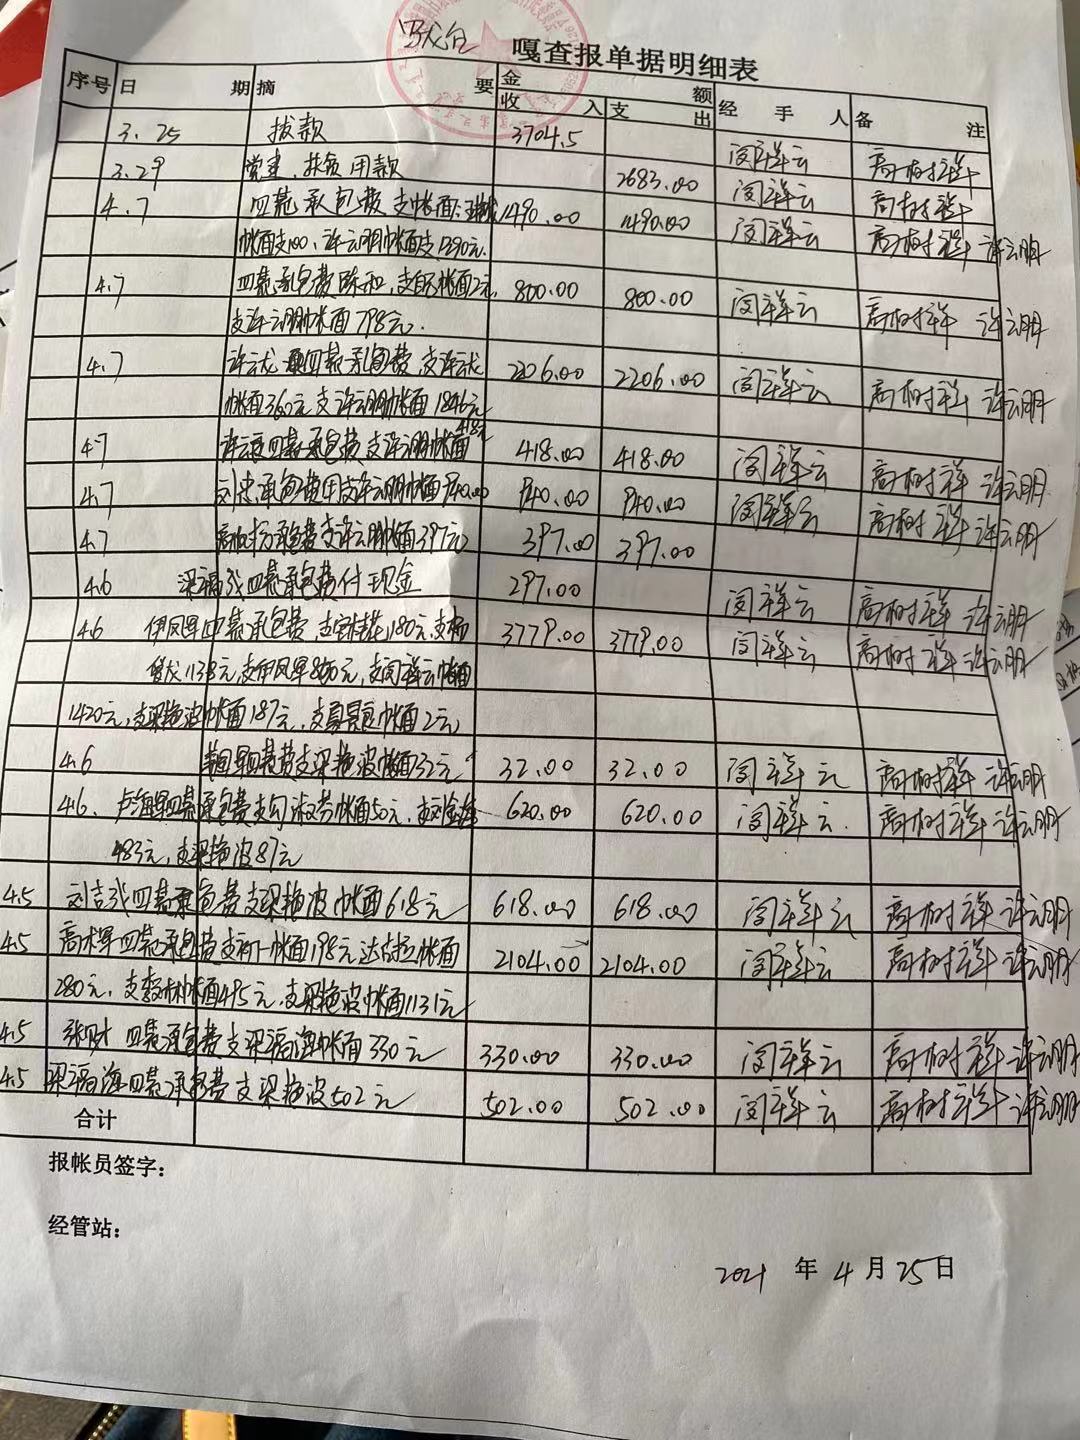 嘎查报单据明细表
序号 日期 摘要 金额 经手人 备注
收入 支出
3.25 拨款 3704.5 闫祥云 高树祥
3.29 党建、扶贫用款 2683.00 闫祥云 高树祥
4.7 四荒承包费 支帐面: 1490.00 1490.00 闫祥云 高树祥 许云朋
帐面支100、许云朋帐面支1390元.
4.7 四荒承包费 陈和、支 帐面2元, 800.00 800.00 闫祥云 高树祥 许云朋
支许云朋帐面798元.
4.7 许云龙 四荒承包费,支许云龙 2206.00 2206.00 闫祥云 高树祥 许云朋
帐面360元支许云朋帐面1846元
4.7 四荒承包费支许云朋帐面418元 418.00 418.00 闫祥云 高树祥 许云朋
4.7 刘忠承包费用支许云朋帐面940.00 940.00 940.00 闫祥云 高树祥 许云朋
4.7 承包费支许云朋帐面397元 397.00 397.00
4.6 梁福成四荒承包费付现金 297.00 闫祥云 高树祥 许云朋
4.6 伊凤军四荒承包费,支 1180元,支 3779.00 3779.00 闫祥云 高树祥 许云朋
1138元,支伊凤军 元,支闫祥云帐面
1420元,支梁艳波帐面187元,支 帐面2元
4.6 四荒费支梁艳波帐面32元 32.00 32.00 闫祥云 高树祥 许云朋
4.6. 卢海军四荒承包费支 帐面50元, 620.00 620.00 闫祥云. 高树祥 许云朋
483元,支梁艳波87元
4.5 刘吉成四荒承包费支梁艳波帐面618元 618.00 618.00 闫祥云 高树祥 许云朋
4.5 四荒承包费支 帐面198元 帐面 2104.00 2104.00 闫祥云 高树祥 许云朋
280元,支 帐面495元,支梁艳波帐面1131元
4.5 张财 四荒承包费支梁福海帐面330元 330.00 330.00 闫祥云 高树祥 许云朋
4.5 梁福海四荒承包费支梁艳波502元 502.00 502.00 闫祥云 高树祥 许云朋
合计
报帐员签字:
经管站:
2021 年 4 月 25 日